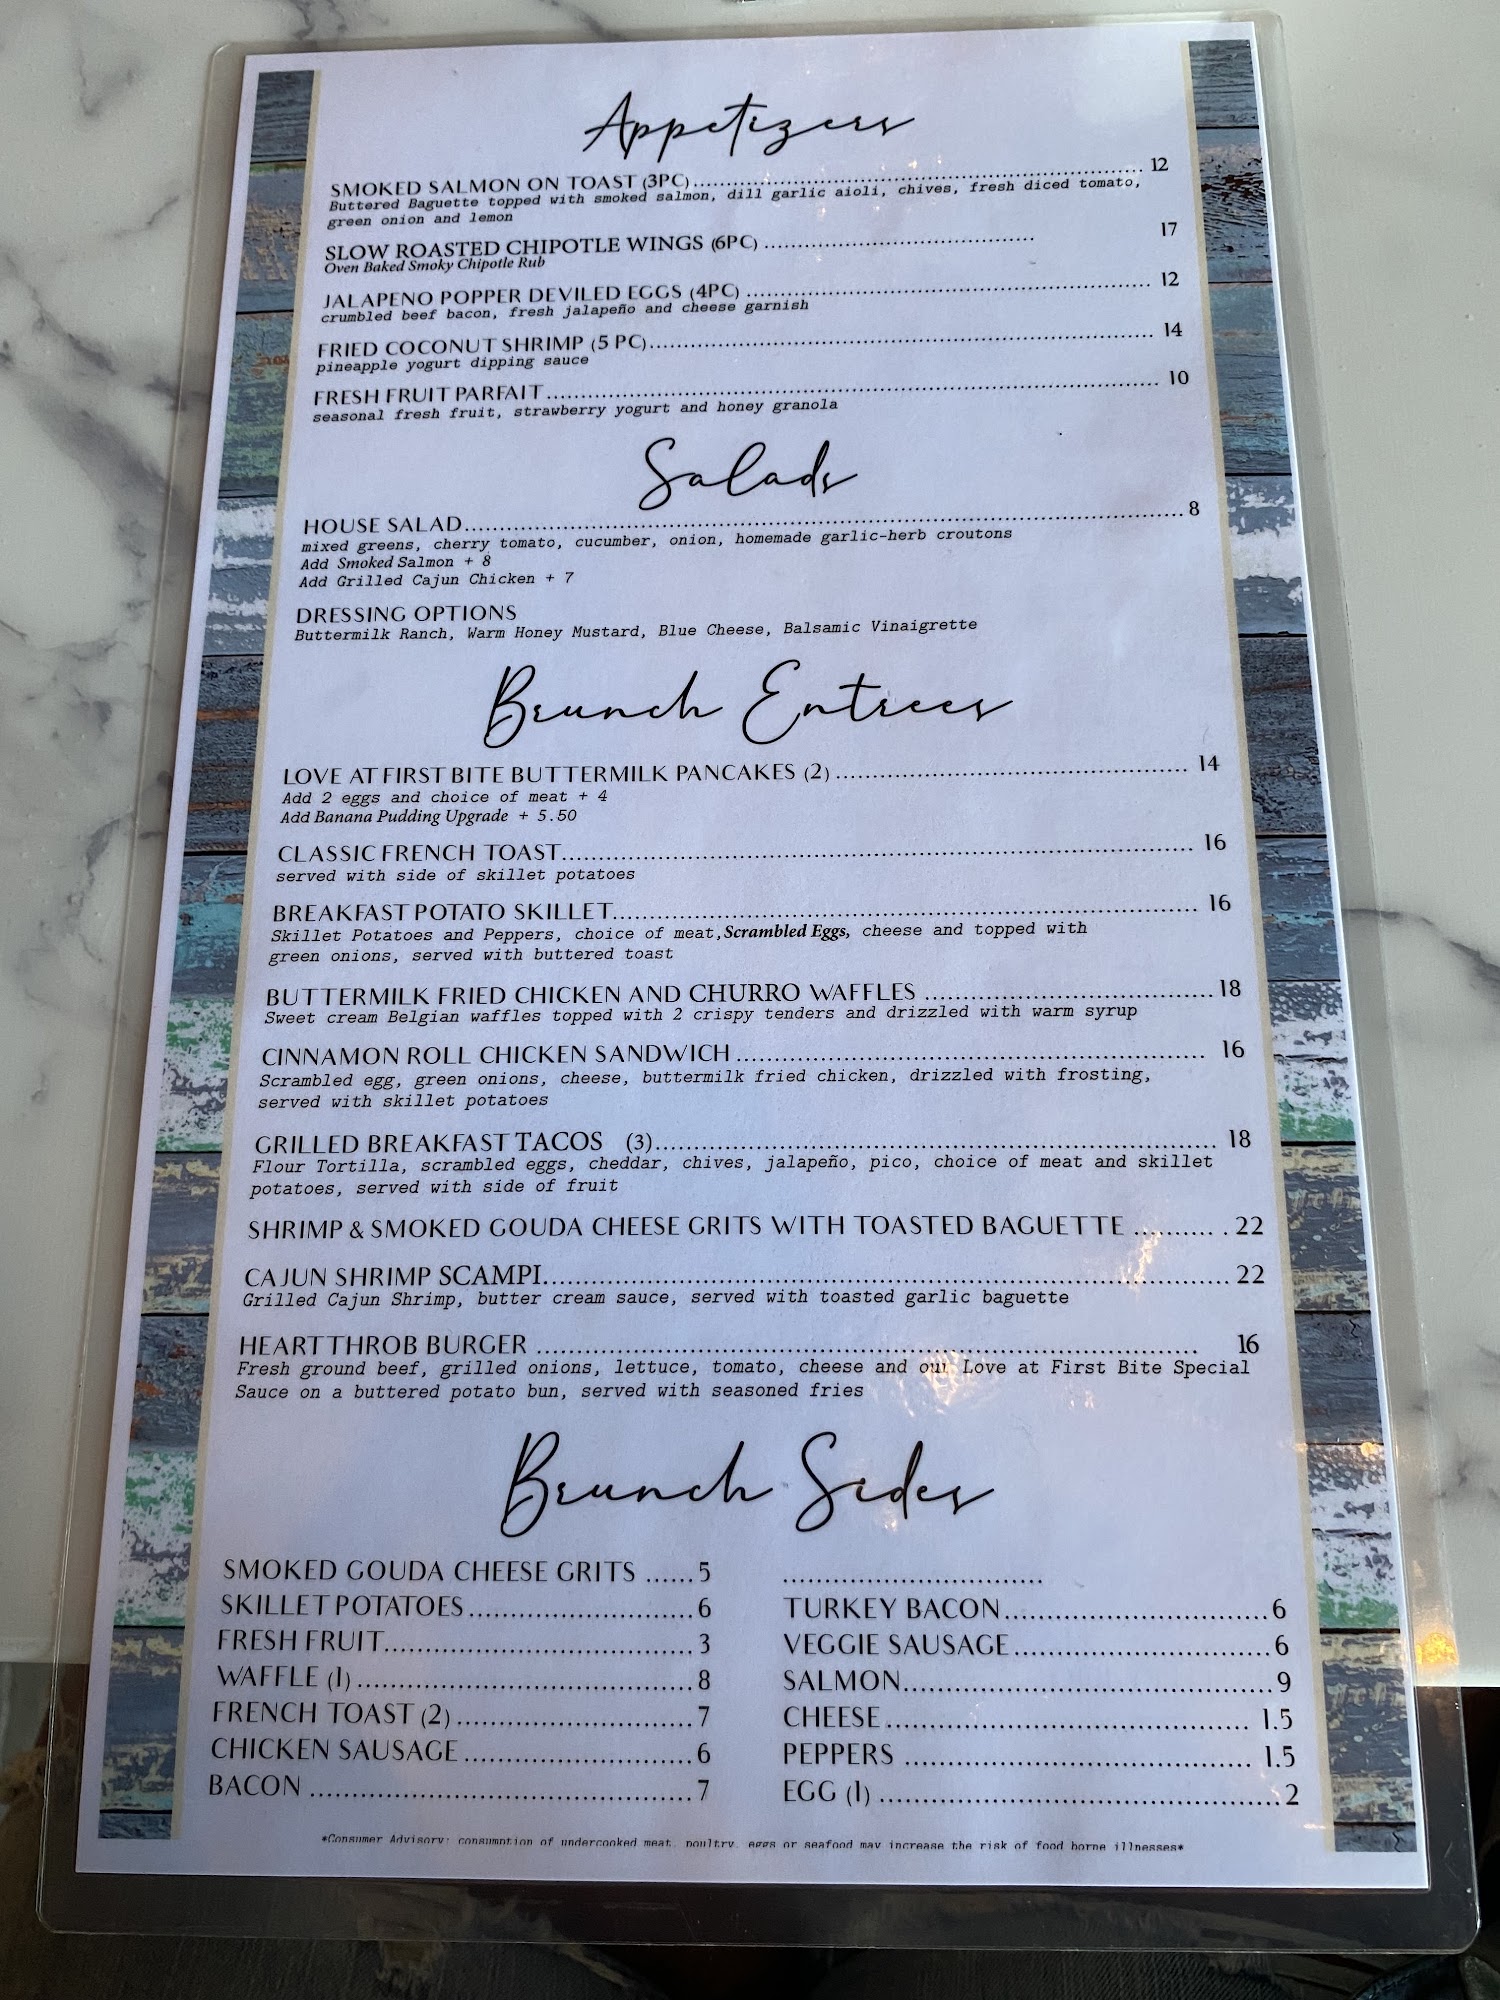 Appetizers
SMOKED SALMON ON TOAST (3PC)........................................ 12
Buttered Baguette topped with smoked salmon, dill garlic aioli, chives, fresh diced tomato,
green onion and lemon
SLOW ROASTED CHIPOTLE WINGS (6PC) ........................................ 17
Oven Baked Smoky Chipotle Rub
JALAPENO POPPER DEVILED EGGS (4PC) ........................................ 12
crumbled beef bacon, fresh jalapeño and cheese garnish
FRIED COCONUT SHRIMP (5 PC)........................................ 14
pineapple yogurt dipping sauce
FRESH FRUIT PARFAIT........................................ 10
seasonal fresh fruit, strawberry yogurt and honey granola
Salads
HOUSE SALAD........................................ 8
mixed greens, cherry tomato, cucumber, onion, homemade garlic-herb croutons
Add Smoked Salmon + 8
Add Grilled Cajun Chicken + 7
DRESSING OPTIONS
Buttermilk Ranch, Warm Honey Mustard, Blue Cheese, Balsamic Vinaigrette
Brunch Entrees
LOVE AT FIRST BITE BUTTERMILK PANCAKES (2) ........................................ 14
Add 2 eggs and choice of meat + 4
Add Banana Pudding Upgrade + 5.50
CLASSIC FRENCH TOAST........................................ 16
served with side of skillet potatoes
BREAKFAST POTATO SKILLET........................................ 16
Skillet Potatoes and Peppers, choice of meat, Scrambled Eggs, cheese and topped with
green onions, served with buttered toast
BUTTERMILK FRIED CHICKEN AND CHURRO WAFFLES ........................................ 18
Sweet cream Belgian waffles topped with 2 crispy tenders and drizzled with warm syrup
CINNAMON ROLL CHICKEN SANDWICH ........................................ 16
Scrambled egg, green onions, cheese, buttermilk fried chicken, drizzled with frosting,
served with skillet potatoes
GRILLED BREAKFAST TACOS (3)........................................ 18
Flour Tortilla, scrambled eggs, cheddar, chives, jalapeño, pico, choice of meat and skillet
potatoes, served with side of fruit
SHRIMP & SMOKED GOUDA CHEESE GRITS WITH TOASTED BAGUETTE .......... . 22
CAJUN SHRIMP SCAMPI........................................ 22
Grilled Cajun Shrimp, butter cream sauce, served with toasted garlic baguette
HEARTTHROB BURGER ........................................ 16
Fresh ground beef, grilled onions, lettuce, tomato, cheese and our Love at First Bite Special
Sauce on a buttered potato bun, served with seasoned fries
Brunch Sides
SMOKED GOUDA CHEESE GRITS ...... 5
SKILLET POTATOES........................ 6
FRESH FRUIT................................ 3
WAFFLE (1) ................................ 8
FRENCH TOAST (2) ........................ 7
CHICKEN SAUSAGE ........................ 6
BACON ........................................ 7
................................
TURKEY BACON............................ 6
VEGGIE SAUSAGE............................ 6
SALMON........................................ 9
CHEESE........................................ 1.5
PEPPERS ........................................ 1.5
EGG (1) ........................................ 2
*Consumer Advisory: consumption of undercooked meat, poultry, eggs or seafood may increase the risk of food borne illnesses*